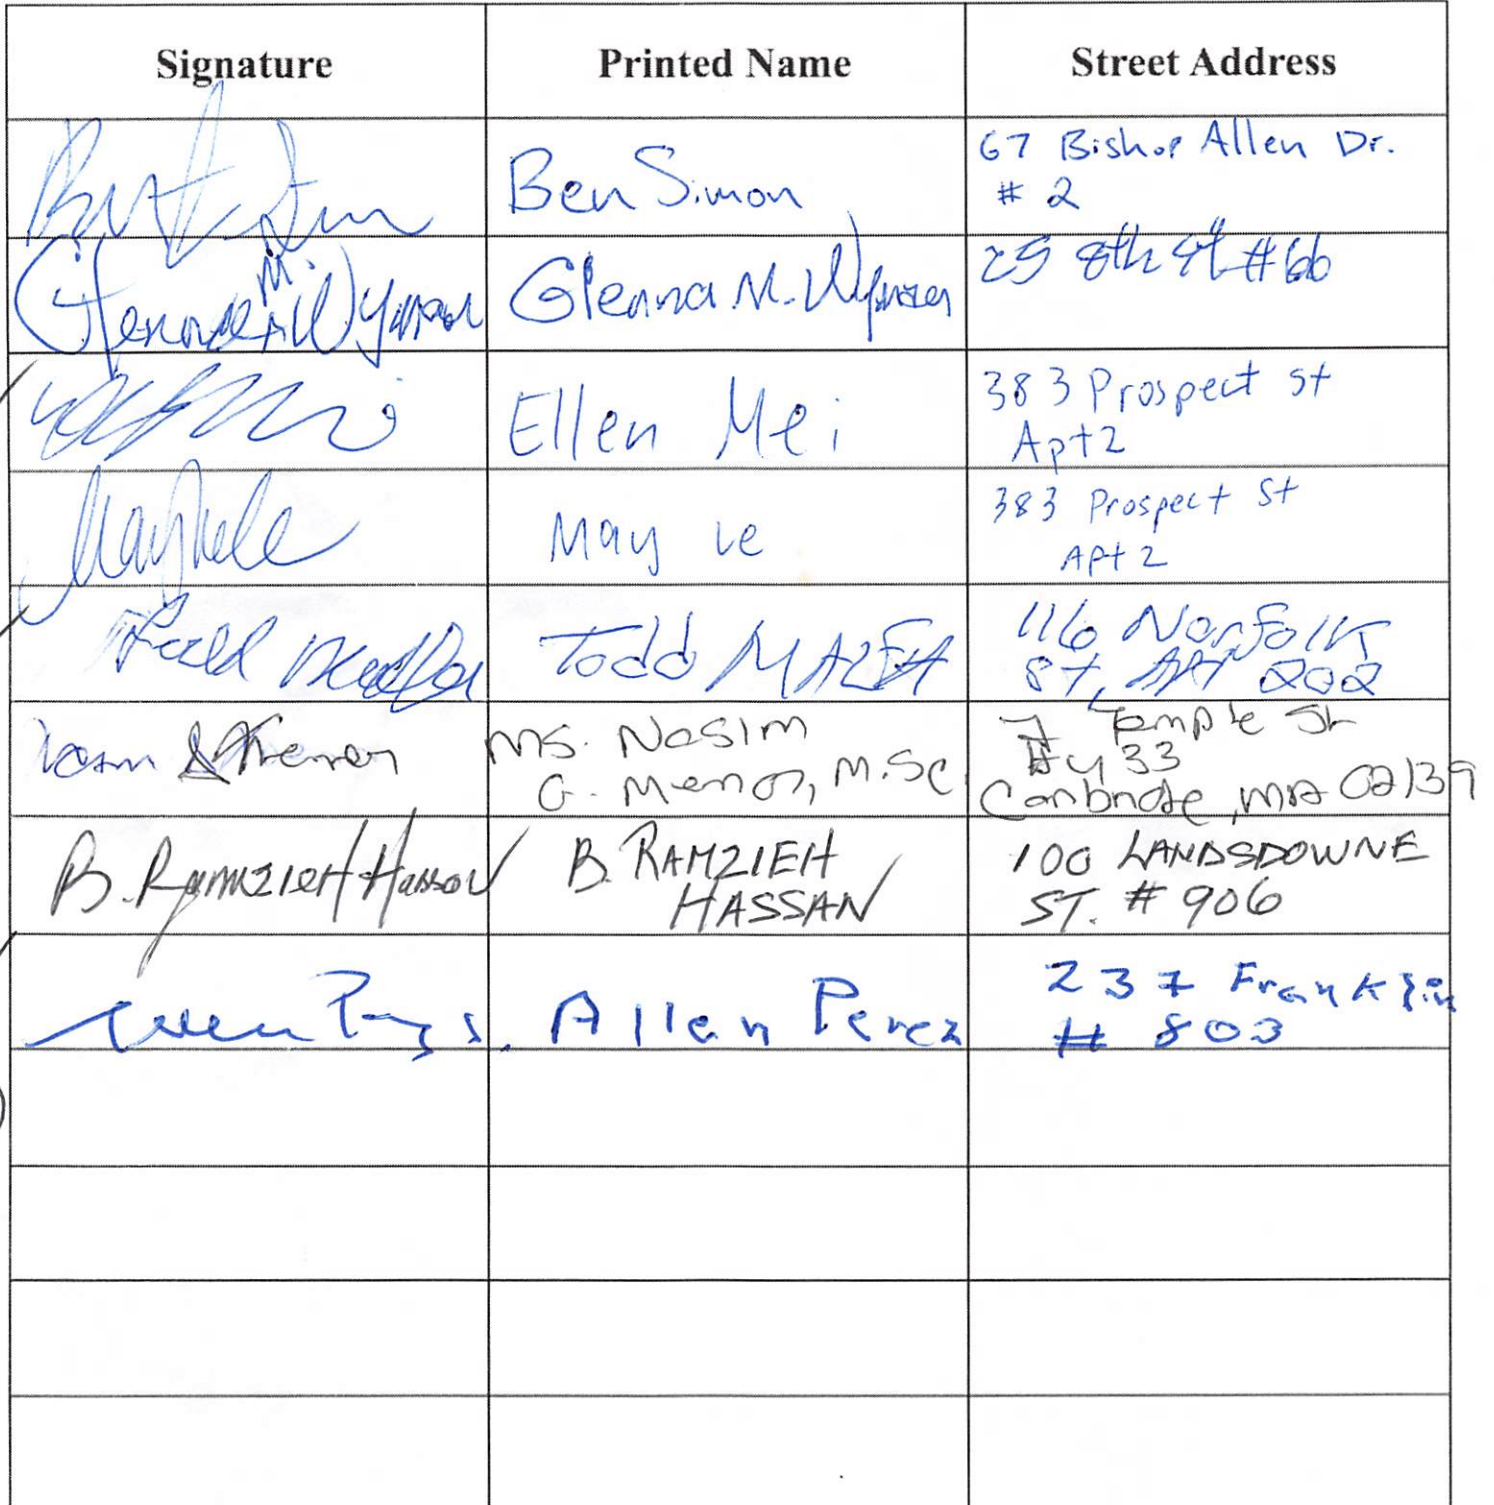 Signature Printed Name Street Address
Ben Simon
67 Bishop Allen Dr.
# 2
Glenna M. Wyman
Glenna M. Wyman
25 8th St #6b
Ellen Mei
383 Prospect St
Apt 2
May Le
383 Prospect St
Apt 2
Todd
Todd MAZEH
116 Norfolk
St, APT 202
Ms. Nasim
G. Memon, M.Sc
7 Temple St
#433
Cambridge, MA 02139
B. RAMZIEH HASSAN
B. RAMZIEH
HASSAN
100 LANDSDOWNE
ST. # 906
Allen Perez
237 Franklin
# 803